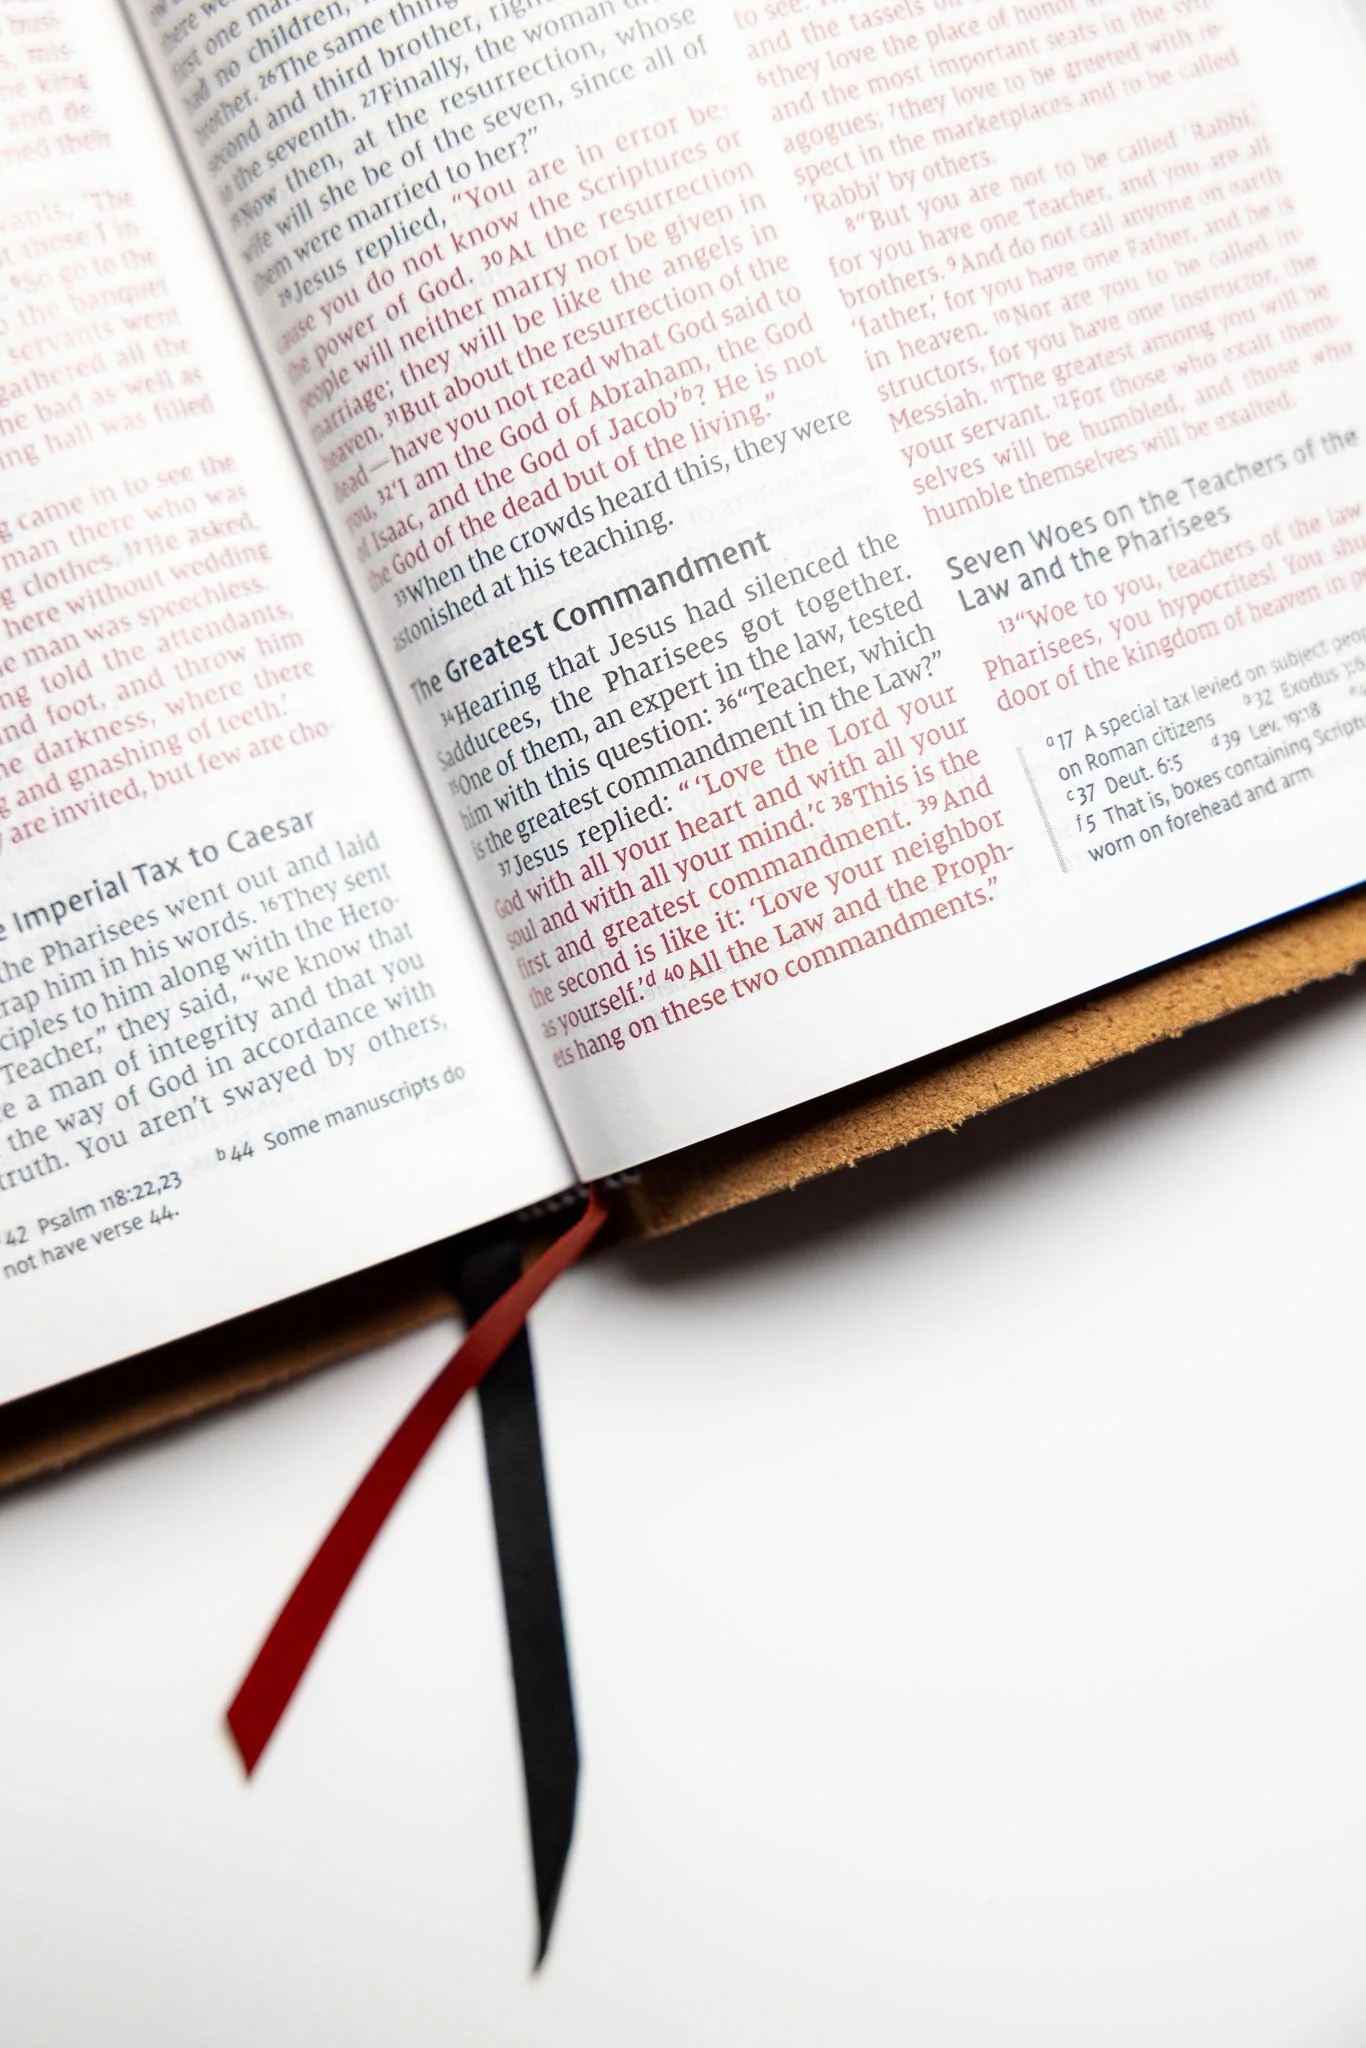 busi-
mis-
he king
and de-
ned their
vants, 'The
t those I in-
. ⁹So go to the
the banquet
servants went
gathered all the
he bad as well as
ng hall was filled
g came in to see the
man there who was
g clothes. ¹²He asked,
here without wedding
e man was speechless.
ng told the attendants,
nd foot, and throw him
he darkness, where there
g and gnashing of teeth.'
are invited, but few are cho-
Imperial Tax to Caesar
the Pharisees went out and laid
rap him in his words. ¹⁶They sent
ciples to him along with the Hero-
Teacher," they said, "we know that
e a man of integrity and that you
the way of God in accordance with
truth. You aren't swayed by others,
42 Psalm 118:22,23 b 44 Some manuscripts do
not have verse 44.
first one mar
had no children,
brother. ²⁶The same thing
second and third brother, righ
to the seventh. ²⁷Finally, the woman
Now then, at the resurrection, whose
wife will she be of the seven, since all of
them were married to her?"
²⁹Jesus replied, "You are in error be-
cause you do not know the Scriptures or
the power of God. ³⁰At the resurrection
people will neither marry nor be given in
marriage; they will be like the angels in
heaven. ³¹But about the resurrection of the
dead—have you not read what God said to
you, ³²'I am the God of Abraham, the God
of Isaac, and the God of Jacob'b? He is not
the God of the dead but of the living."
³³When the crowds heard this, they were
astonished at his teaching.
The Greatest Commandment
³⁴Hearing that Jesus had silenced the
Sadducees, the Pharisees got together.
³⁵One of them, an expert in the law, tested
him with this question: ³⁶"Teacher, which
is the greatest commandment in the Law?"
³⁷Jesus replied: " 'Love the Lord your
God with all your heart and with all your
soul and with all your mind.'c ³⁸This is the
first and greatest commandment. ³⁹And
the second is like it: 'Love your neighbor
as yourself.'d ⁴⁰All the Law and the Proph-
ets hang on these two commandments."
to see.
and the tassels on
⁶they love the place of honor
and the most important seats in the syn-
agogues; ⁷they love to be greeted with re-
spect in the marketplaces and to be called
'Rabbi' by others.
⁸"But you are not to be called 'Rabbi,'
for you have one Teacher, and you are all
brothers. ⁹And do not call anyone on earth
'father,' for you have one Father, and he is
in heaven. ¹⁰Nor are you to be called in-
structors, for you have one Instructor, the
Messiah. ¹¹The greatest among you will be
your servant. ¹²For those who exalt them-
selves will be humbled, and those who
humble themselves will be exalted.
Seven Woes on the Teachers of the
Law and the Pharisees
¹³"Woe to you, teachers of the law
Pharisees, you hypocrites! You shu
door of the kingdom of heaven in p
a 17 A special tax levied on subject peop
on Roman citizens b 32 Exodus 3:6
c 37 Deut. 6:5 d 39 Lev. 19:18
f 5 That is, boxes containing Scriptu
worn on forehead and arm